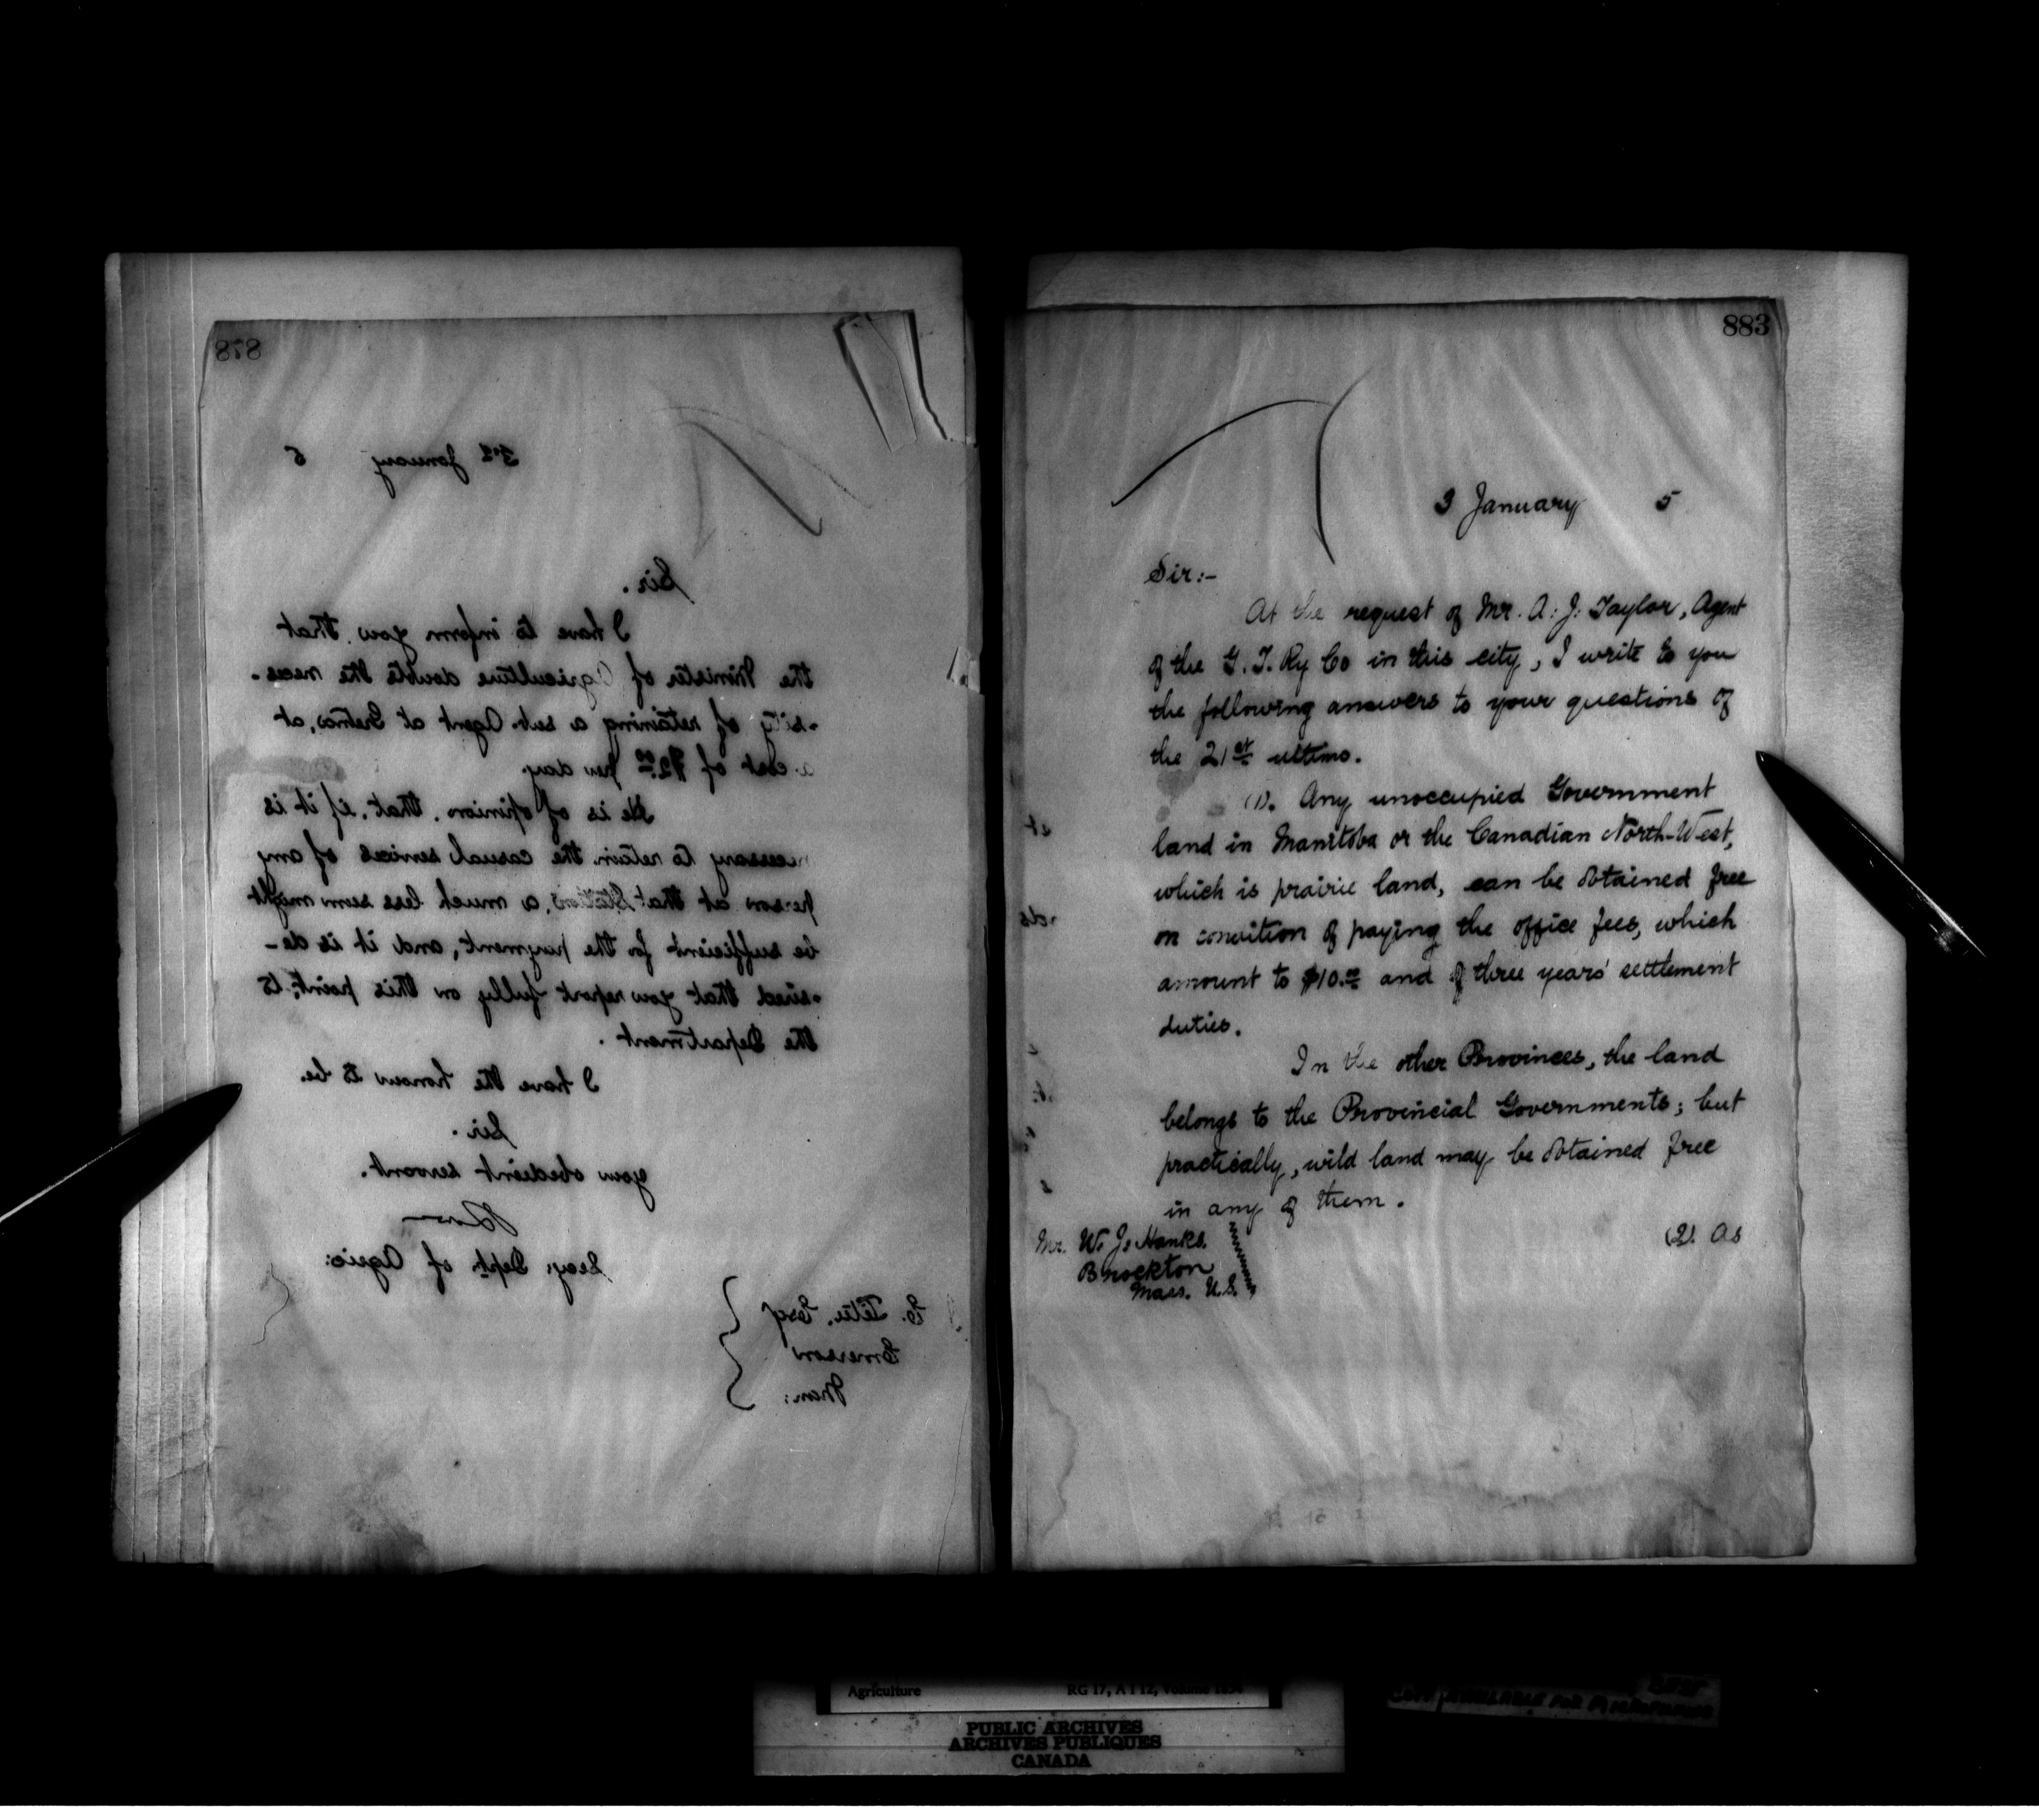 878
3rd January 5
Sir.
I have to inform you that
the Minister of Agriculture doubts the neces-
-sity of retaining a sub. Agent at Gretna, at
a cost of $2.00 per day.
He is of opinion, that, if it is
necessary to retain the casual services of any
person at that Station, a much less sum might
be sufficient for the payment, and it is de-
-sired that you report fully on this point, to
the Department.
I have the honour to be.
Sir.
your obedient servant.
Secy. Dept. of Agric:
E. Têtu. Esq
Emerson
Man:
883
3 January 5
Sir:-
At the request of Mr. A. J. Taylor, Agent
of the G. T. Ry Co in this city, I write to you
the following answers to your questions of
the 21st ultimo.
(1). Any unoccupied Government
land in Manitoba or the Canadian North-West,
which is prairie land, can be obtained free
on condition of paying the office fees, which
amount to $10.00 and of three years' settlement
duties.
In the other Provinces, the land
belongs to the Provincial Governments; but
practically, wild land may be obtained free
in any of them.
(2). As
Mr. W. J. Hanks.
Brockton
Mass. U.S.
Agriculture RG 17, A I 12, Volume
PUBLIC ARCHIVES
ARCHIVES PUBLIQUES
CANADA